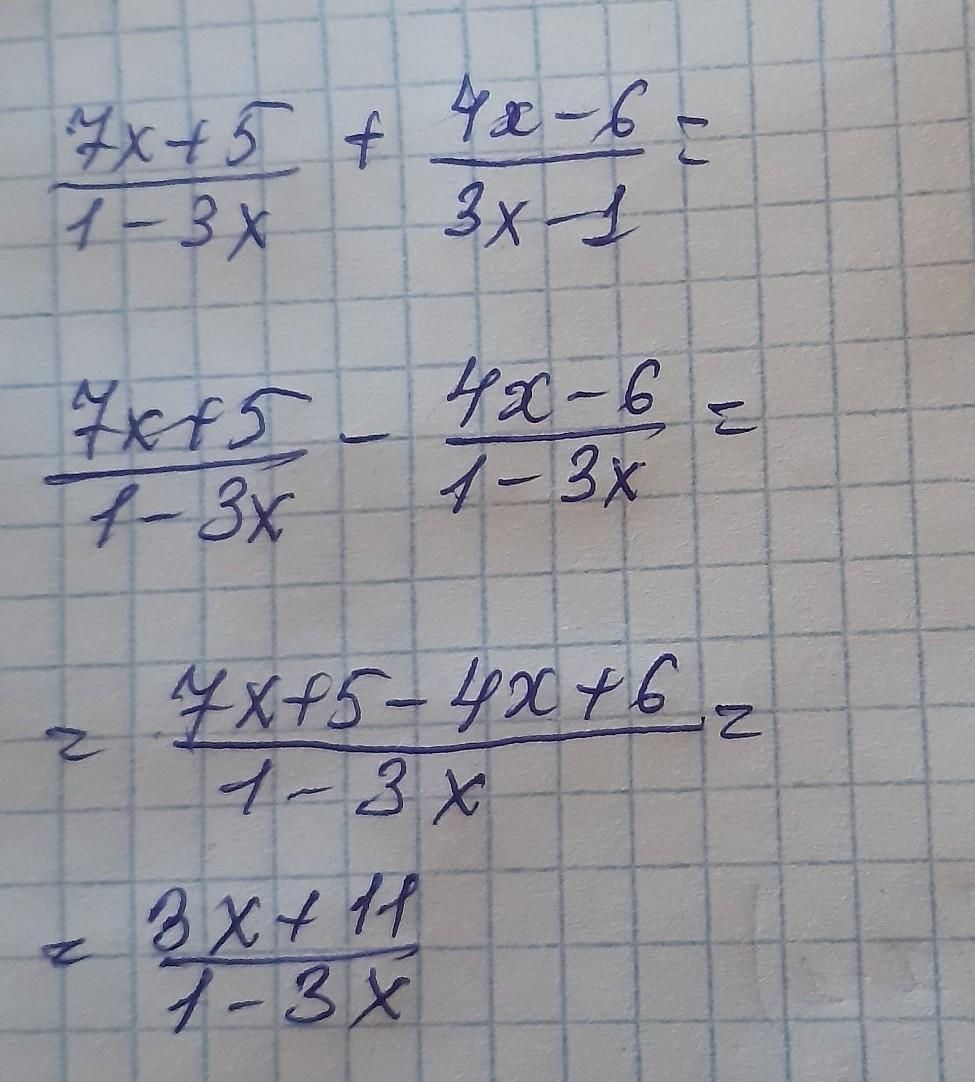 7x+5 + 4x-6 =
1-3x 3x-1
7x+5 - 4x-6 =
1-3x 1-3x
= 7x+5-4x+6 =
1-3x
= 3x+11
1-3x